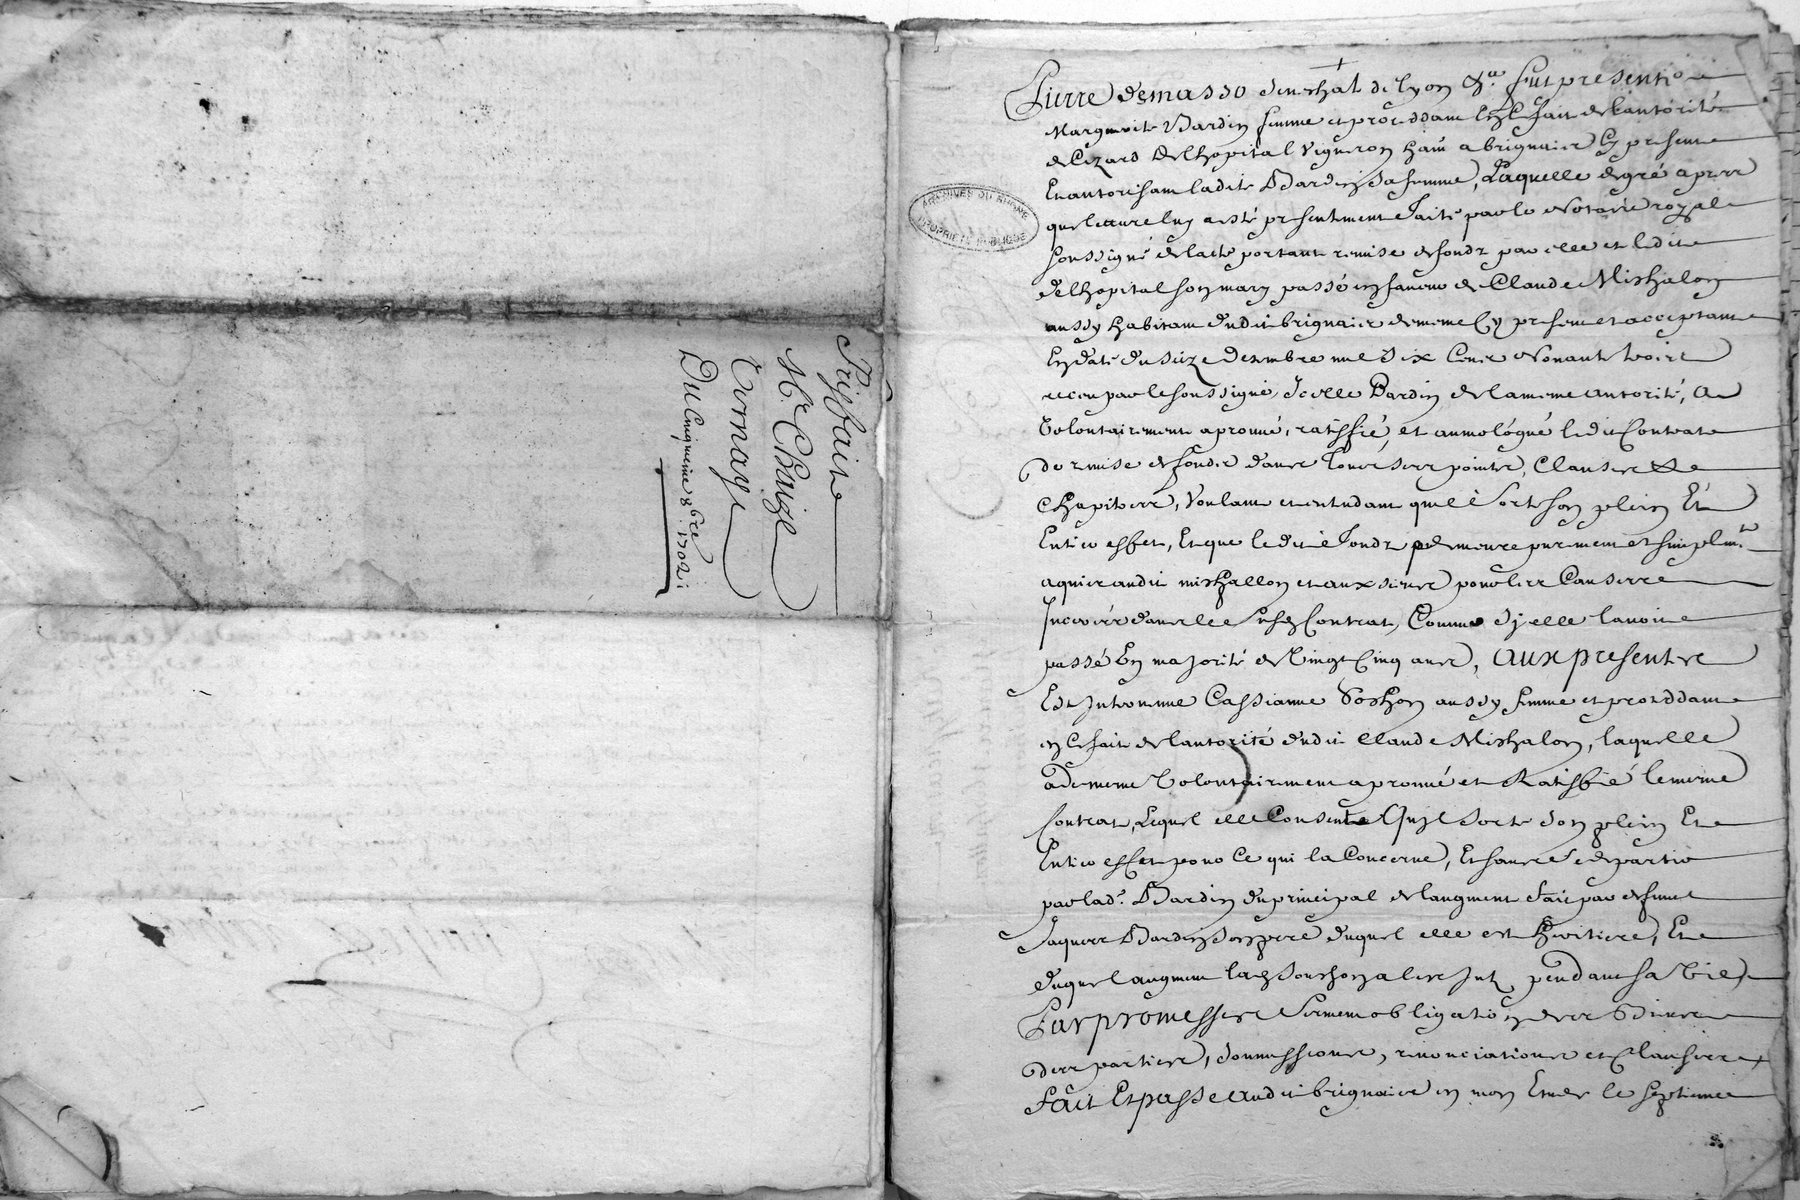 Prisfaite
Mr Chaize
Ternay
Du Cinquieme 8bre 1702
ARCHIVES DU RHONE
PROPRIETE PUBLIQUE
Pierre demasso senechal de lyon &a fut presente
Marguerite Bardin femme et proceddant en ce fait de lautorité
de Cezard delhopital vigneron habit a brignaier cy present
et autorisant ladite Bardin sa femme, Laquelle degré aprer
que lecture luy a esté presentement faite par le Notaire royal
soussigné de lacte portant remise de fondz par elle et ledit
delhopital son mary passé en faveur de Claude Mishalon
aussy habitant dudit brignaier de meme cy present et acceptant
en date du seize decembre mil six cent nonante troize
receu par le soussigné Icelle Bardin de la meme autorité, a
volontairement aprouvé, ratiffié, et aumologué ledit Contrat
de remise de fondz dans tous ses pointz, Clauses et
Chapitres, voulant et entendant quil sorte son plein Et
Entier effet, Et que ledit fondz demeure purement et simplemt
aquis audit mishallon et aux siens pour les Causes
Inserées dans le susd Contrat, Comme sy elle lavoit
passé En majorité de Vingt Cinq ans, aux presentes
Est Intervenue Cassianne Soshon aussy femme et proceddant
en ce fait de lautorité dudit Claude Mishalon, laquelle
a de meme Volontairement aprouvé et Ratiffié le meme
Contrat, Lequel elle Consent quil sorte son plein Et
Entier effet pour Ce qui la Concerne, Et sans se departir
par lad. Bardin du principal de laugment fait par deffunt
Jaques Bardin son pere duquel elle est heritiere, Et
duquel augment lad Soushon a les Intz pendant sa Vie
Par promesses serment obligation de Biens
des parties, soumissions, renonciations et Clauses
Fait Et passé audit brignaier en mon Etude le septieme